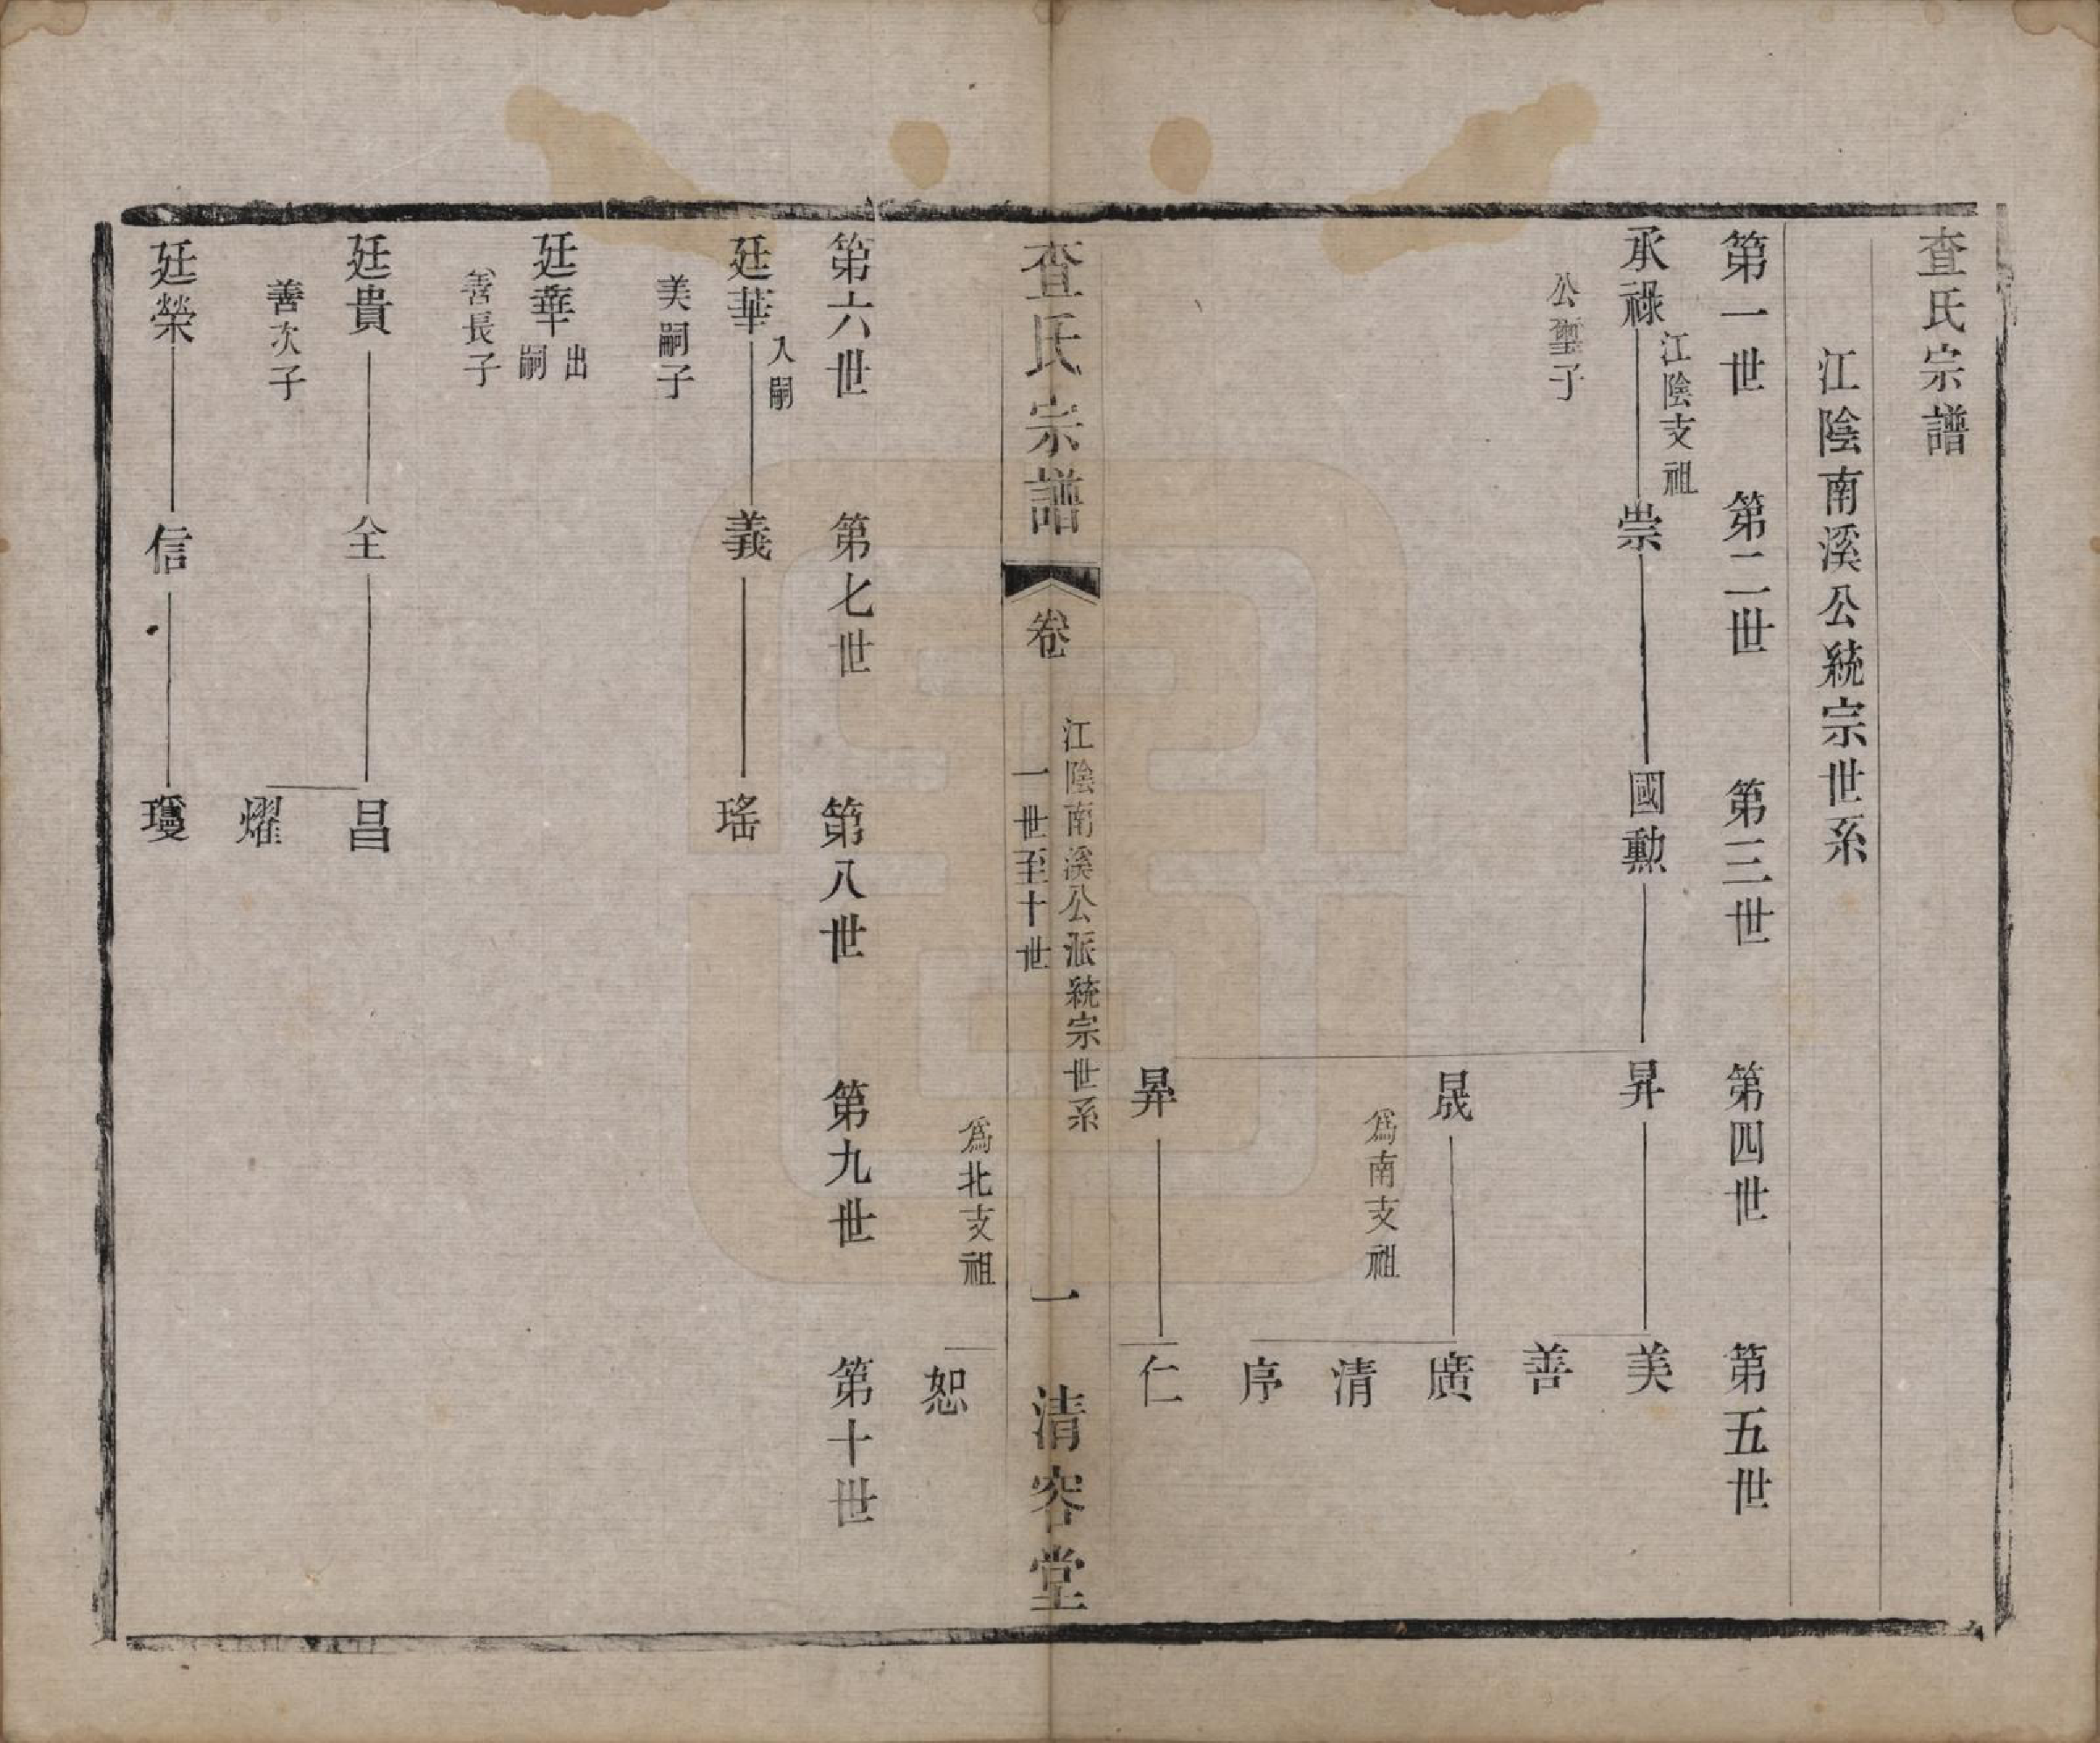 查氏宗譜
江陰南溪公統宗世系
第一世 第二世 第三世 第四世 第五世
承祿 江陰支祖 崇 國勲 昇 美
公璽子
善
晟 廣
為南支祖
清
序
昪 仁
查氏宗譜 卷 江陰南溪公派統宗世系 一世至十世 一 清容堂
為北支祖
恕
第六世 第七世 第八世 第九世 第十世
廷華 入嗣 義 瑤
美嗣子
廷華 出嗣
善長子
廷貴 全 昌
善次子
燿
廷榮 信 瓊